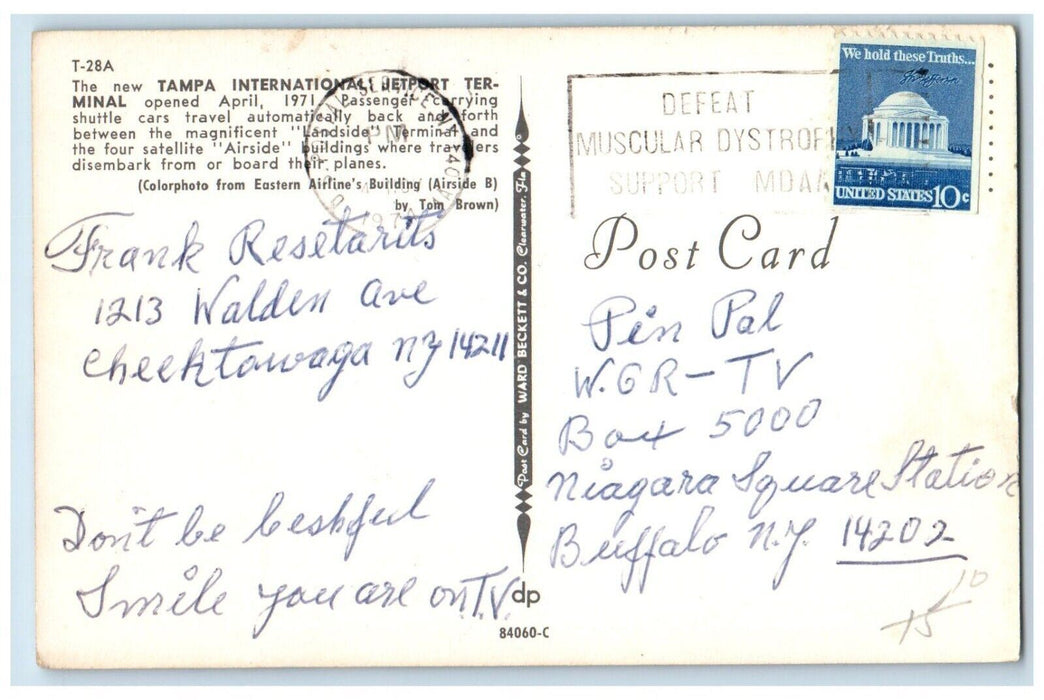 T-28A
The new TAMPA INTERNATIONAL JETPORT TER-
MINAL opened April, 1971. Passenger carrying
shuttle cars travel automatically back and forth
between the magnificent "Landside" Terminal and
the four satellite "Airside" buildings where travelers
disembark from or board their planes.
(Colorphoto from Eastern Airline's Building (Airside B)
by Tom Brown)
Frank Resetarits
1213 Walden Ave
Cheektowaga NY 14211
Don't be beshful
Smile you are on T.V.
Post Card by WARD BECKETT & CO. Clearwater, Fla
dp
84060-C
PM
DEFEAT
MUSCULAR DYSTROPHY
SUPPORT MDAA
We hold these Truths...
UNITED STATES 10c
Post Card
Pen Pal
W.G R-TV
Box 5000
Niagara Square Station
Buffalo N.Y. 14202
10